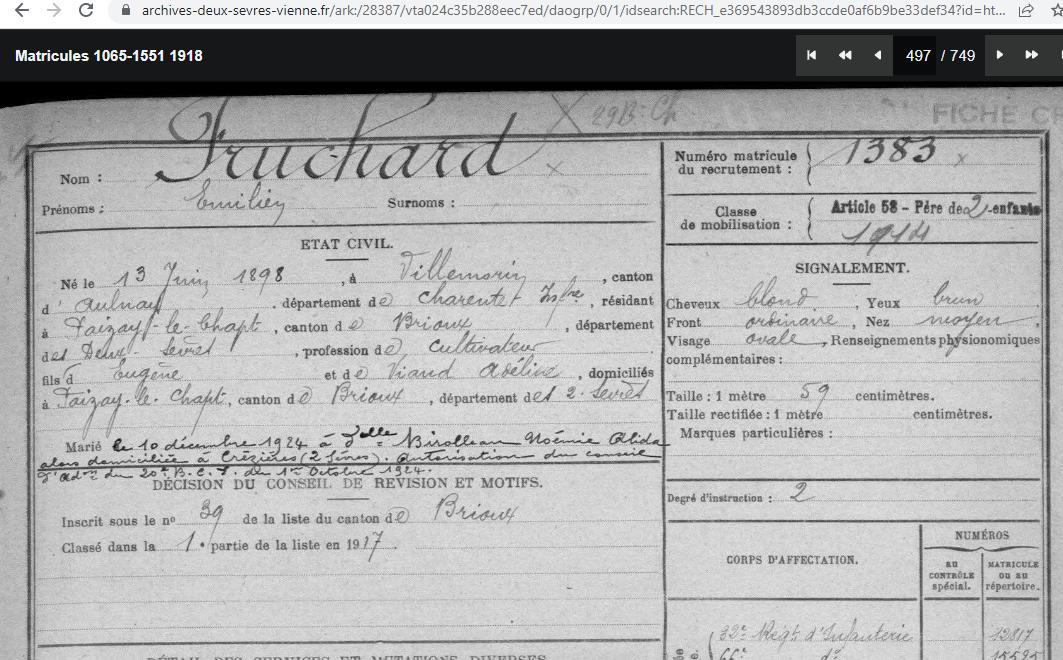 archives-deux-sevres-vienne.fr/ark:/28387/vta024c35b288eec7ed/daogrp/0/1/idsearch:RECH_e369543893db3ccde0af6b9be33def34?id=ht...
Matricules 1065-1551 1918
497 / 749
29 B. Ch
FICHE C
Nom : Fruchard
Prénoms : Emilien Surnoms :
ETAT CIVIL.
Né le 13 Juin 1898, à Villemorin, canton
d'Aulnay, département de Charente Infre, résidant
à Paizay-le-Chapt, canton de Brioux, département
des Deux-Sevres, profession de cultivateur
fils d'Eugène et de Viaud Adéline, domiciliés
à Paizay-le-Chapt, canton de Brioux, département des 2-Sevres
Marié le 10 décembre 1924 à Delle Birolleau Noémie Alida
alors domiciliée à Crézières (2 Sèvres). Autorisation du conseil
d'Adon du 20e B.C.P. du 1er Octobre 1924.
DÉCISION DU CONSEIL DE REVISION ET MOTIFS.
Inscrit sous le no 39 de la liste du canton de Brioux
Classé dans la 1e partie de la liste en 1917.
DÉTAIL DES SERVICES ET MUTATIONS DIVERSES
Numéro matricule
du recrutement : 1383 x
Classe
de mobilisation : Article 58 - Père de 2 enfants
1914
SIGNALEMENT.
Cheveux blond, Yeux brun
Front ordinaire, Nez moyen,
Visage ovale, Renseignements physionomiques
complémentaires :
Taille : 1 mètre 59 centimètres.
Taille rectifiée : 1 mètre centimètres.
Marques particulières :
Degré d'instruction : 2
CORPS D'AFFECTATION.
NUMÉROS
AU CONTRÔLE spécial.
MATRICULE OU AU répertoire.
32e Régt d'Infanterie 12817
66e do 15595